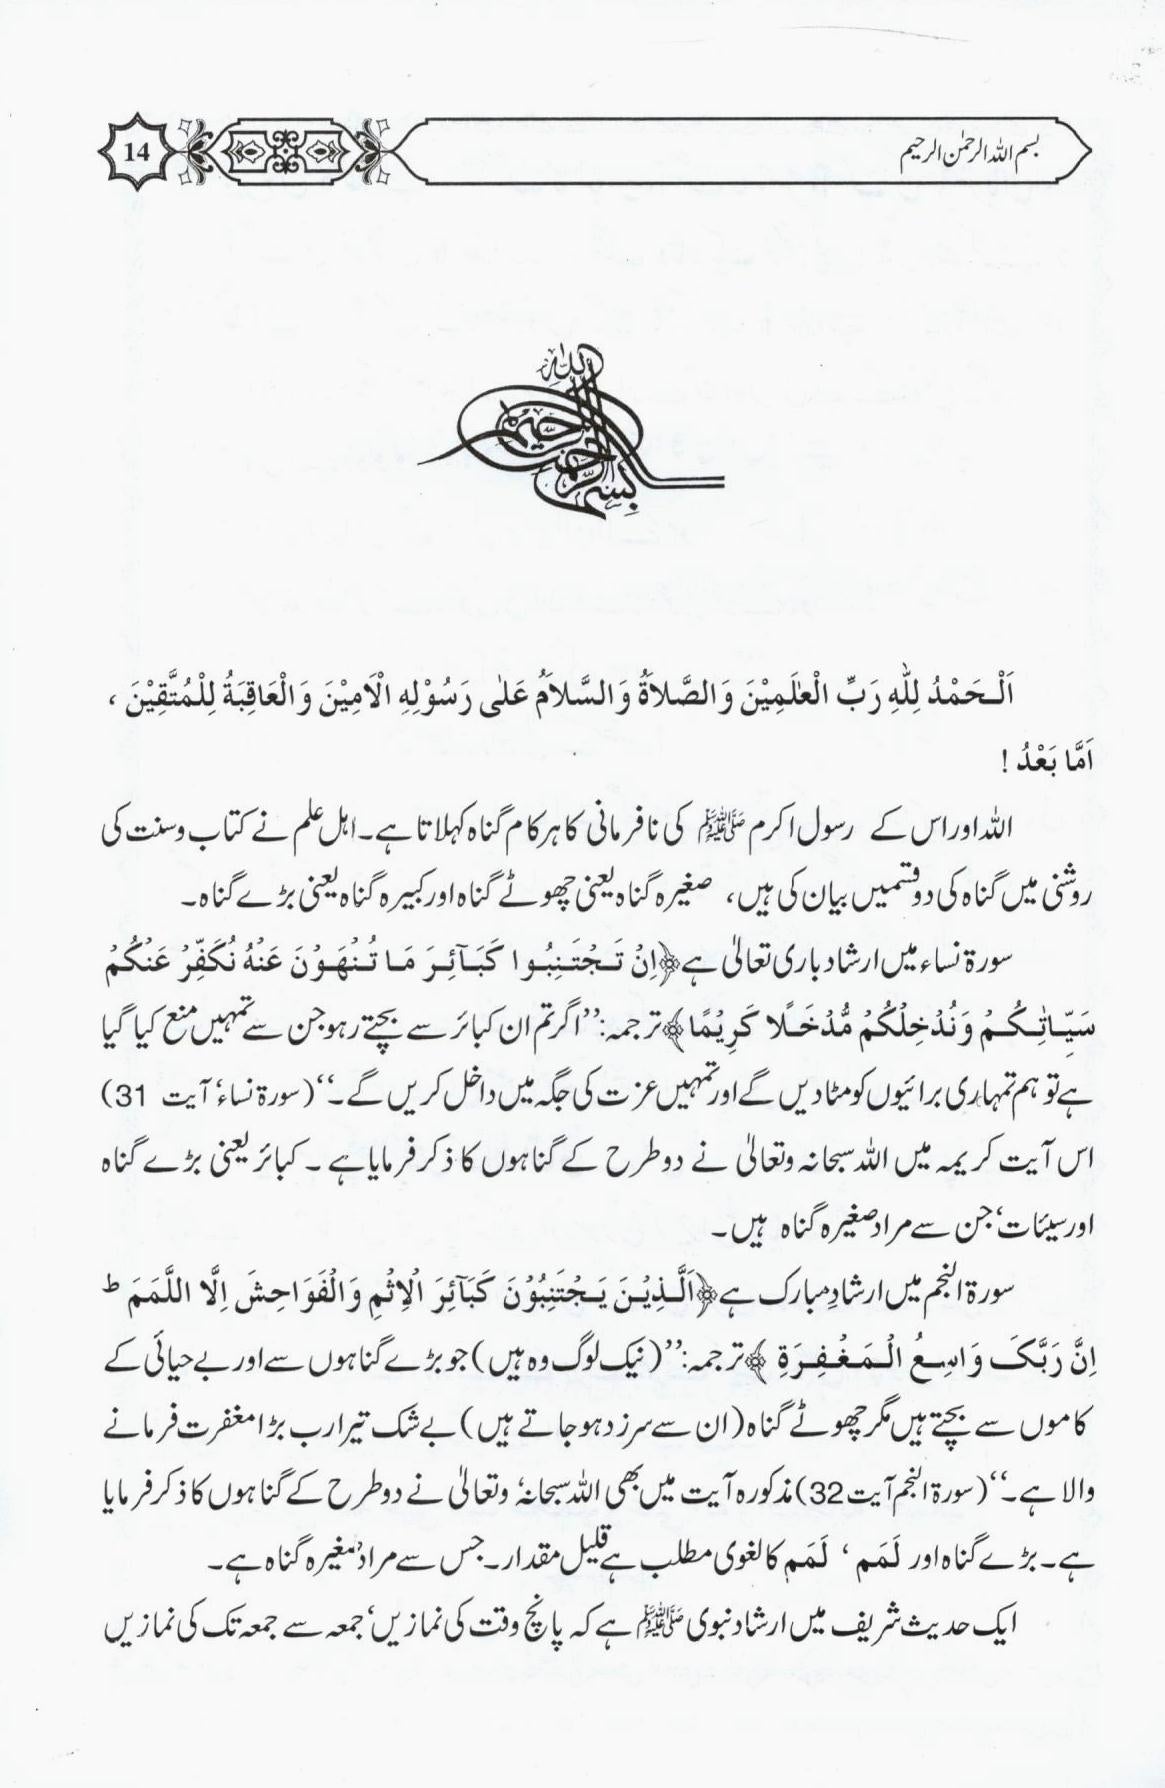 بسم اللہ الرحمٰن الرحیم
14
بِسْمِ اللهِ الرَّحْمٰنِ الرَّحِيْمِ
اَلْحَمْدُ لِلّٰهِ رَبِّ الْعٰلَمِيْنَ وَالصَّلاَةُ وَالسَّلاَمُ عَلٰى رَسُوْلِهِ الْاَمِيْنَ وَالْعَاقِبَةُ لِلْمُتَّقِيْنَ ،
اَمَّا بَعْدُ !
اللہ اور اس کے رسول اکرم ﷺ کی نافرمانی کا ہر کام گناہ کہلاتا ہے۔ اہل علم نے کتاب وسنت کی
روشنی میں گناہ کی دو قسمیں بیان کی ہیں، صغیرہ گناہ یعنی چھوٹے گناہ اور کبیرہ گناہ یعنی بڑے گناہ۔
سورۃ نساء میں ارشاد باری تعالیٰ ہے ﴿اِنْ تَجْتَنِبُوا كَبَآئِرَ مَا تُنْهَوْنَ عَنْهُ نُكَفِّرْ عَنْكُمْ
سَيِّاٰتِكُمْ وَنُدْخِلْكُمْ مُّدْخَلًا كَرِيْمًا﴾ ترجمہ: ’’اگر تم ان کبائر سے بچتے رہو جن سے تمہیں منع کیا گیا
ہے تو ہم تمہاری برائیوں کو مٹا دیں گے اور تمہیں عزت کی جگہ میں داخل کریں گے۔‘‘ (سورۃ نساء، آیت 31)
اس آیت کریمہ میں اللہ سبحانہ وتعالیٰ نے دو طرح کے گناہوں کا ذکر فرمایا ہے ۔ کبائر یعنی بڑے گناہ
اور سیئات، جن سے مراد صغیرہ گناہ ہیں۔
سورۃ النجم میں ارشادِ مبارک ہے ﴿اَلَّذِيْنَ يَجْتَنِبُوْنَ كَبَآئِرَ الْاِثْمِ وَالْفَوَاحِشَ اِلَّا اللَّمَمَ ط
اِنَّ رَبَّكَ وَاسِعُ الْمَغْفِرَةِ ﴾ ترجمہ: ’’(نیک لوگ وہ ہیں) جو بڑے گناہوں سے اور بے حیائی کے
کاموں سے بچتے ہیں مگر چھوٹے گناہ (ان سے سرزد ہو جاتے ہیں) بے شک تیرا رب بڑا مغفرت فرمانے
والا ہے۔‘‘ (سورۃ النجم آیت 32) مذکورہ آیت میں بھی اللہ سبحانہٗ وتعالیٰ نے دو طرح کے گناہوں کا ذکر فرمایا
ہے۔ بڑے گناہ اور لَمَم ، لَمَم کا لغوی مطلب ہے قلیل مقدار۔ جس سے مراد صغیرہ گناہ ہے۔
ایک حدیث شریف میں ارشاد نبوی ﷺ ہے کہ پانچ وقت کی نمازیں، جمعہ سے جمعہ تک کی نمازیں